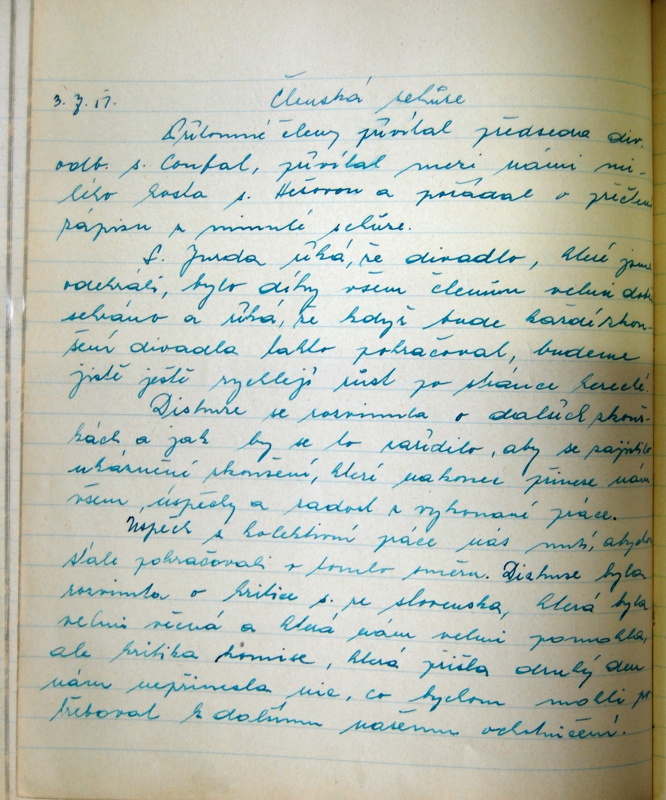 3. 7. 51. Členská schůze
Přítomné členy přivítal předseda div.
odb. s. Coufal, přivítal mezi námi mi-
lého hosta s. a požádal o přečtení
zápisu z minulé schůze.
S. Jurda říká, že divadlo, které jsme
odehráli, bylo díky všem členům velmi dobře
sehráno a říká, že když bude každé zkou-
šení divadla takto pokračovat, budeme
jistě ještě rychleji růst po stránce herecké.
Diskuse se rozvinula o dalších zkouš-
kách a jak by se to zařídilo, aby se zajistilo
ukázněné zkoušení, které nakonec přinese nám
všem úspěchy a radost z vykonané práce.
Úspěch z kolektivní práce nás nutí, abychom
stále pokračovali v tomto směru. Diskuse byla
rozvinuta o kritice s. ze slovenska, která byla
velmi věcná a která nám velmi pomohla,
ale kritika komise, která přišla druhý den
nám nepřinesla nic, co bychom mohli po
třebovat k dalšímu našemu ochotničení.